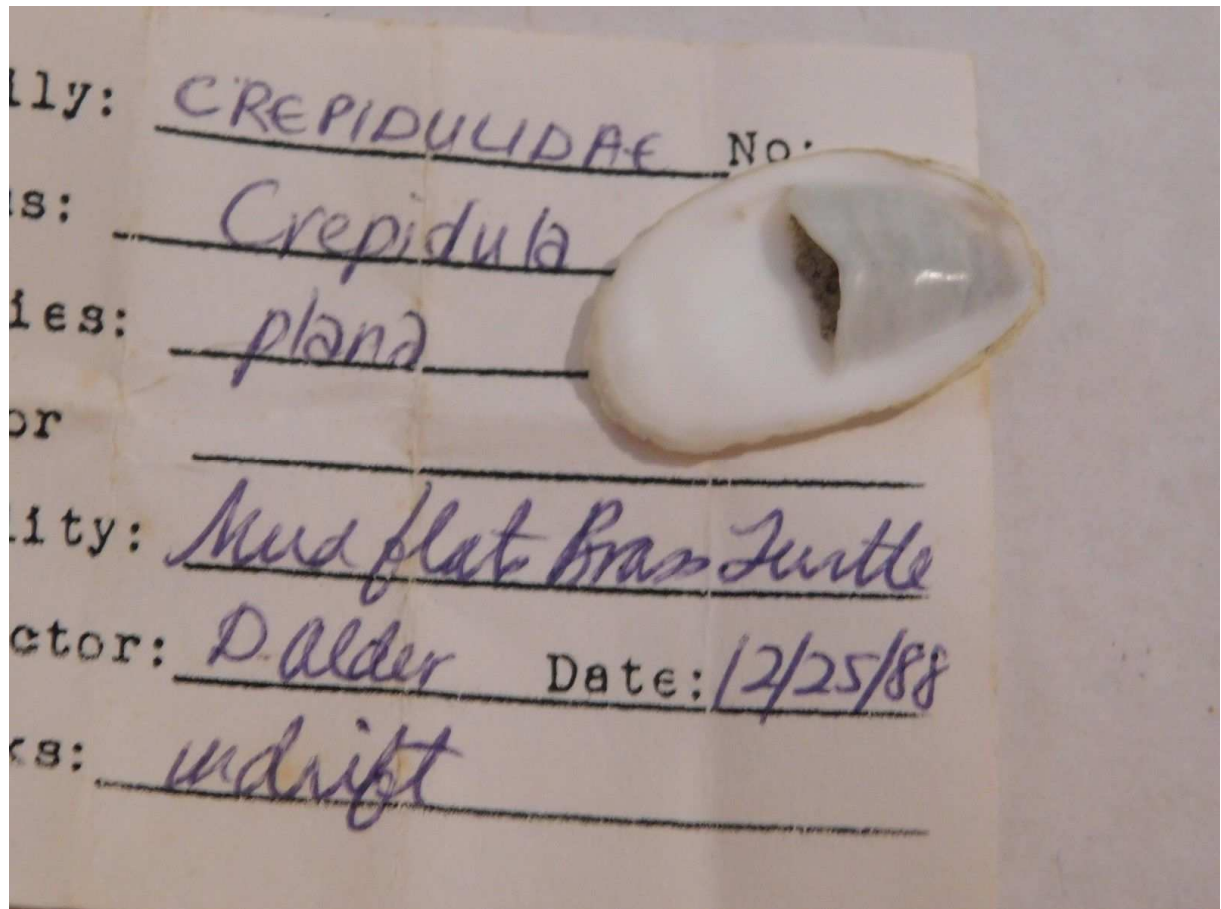 ily: CREPIDULIDAE No:
us: Crepidula
ies: plana
or
lity: Mud flat Brass Turtle
ctor: D. Alder Date: 12/25/88
ks: in drift